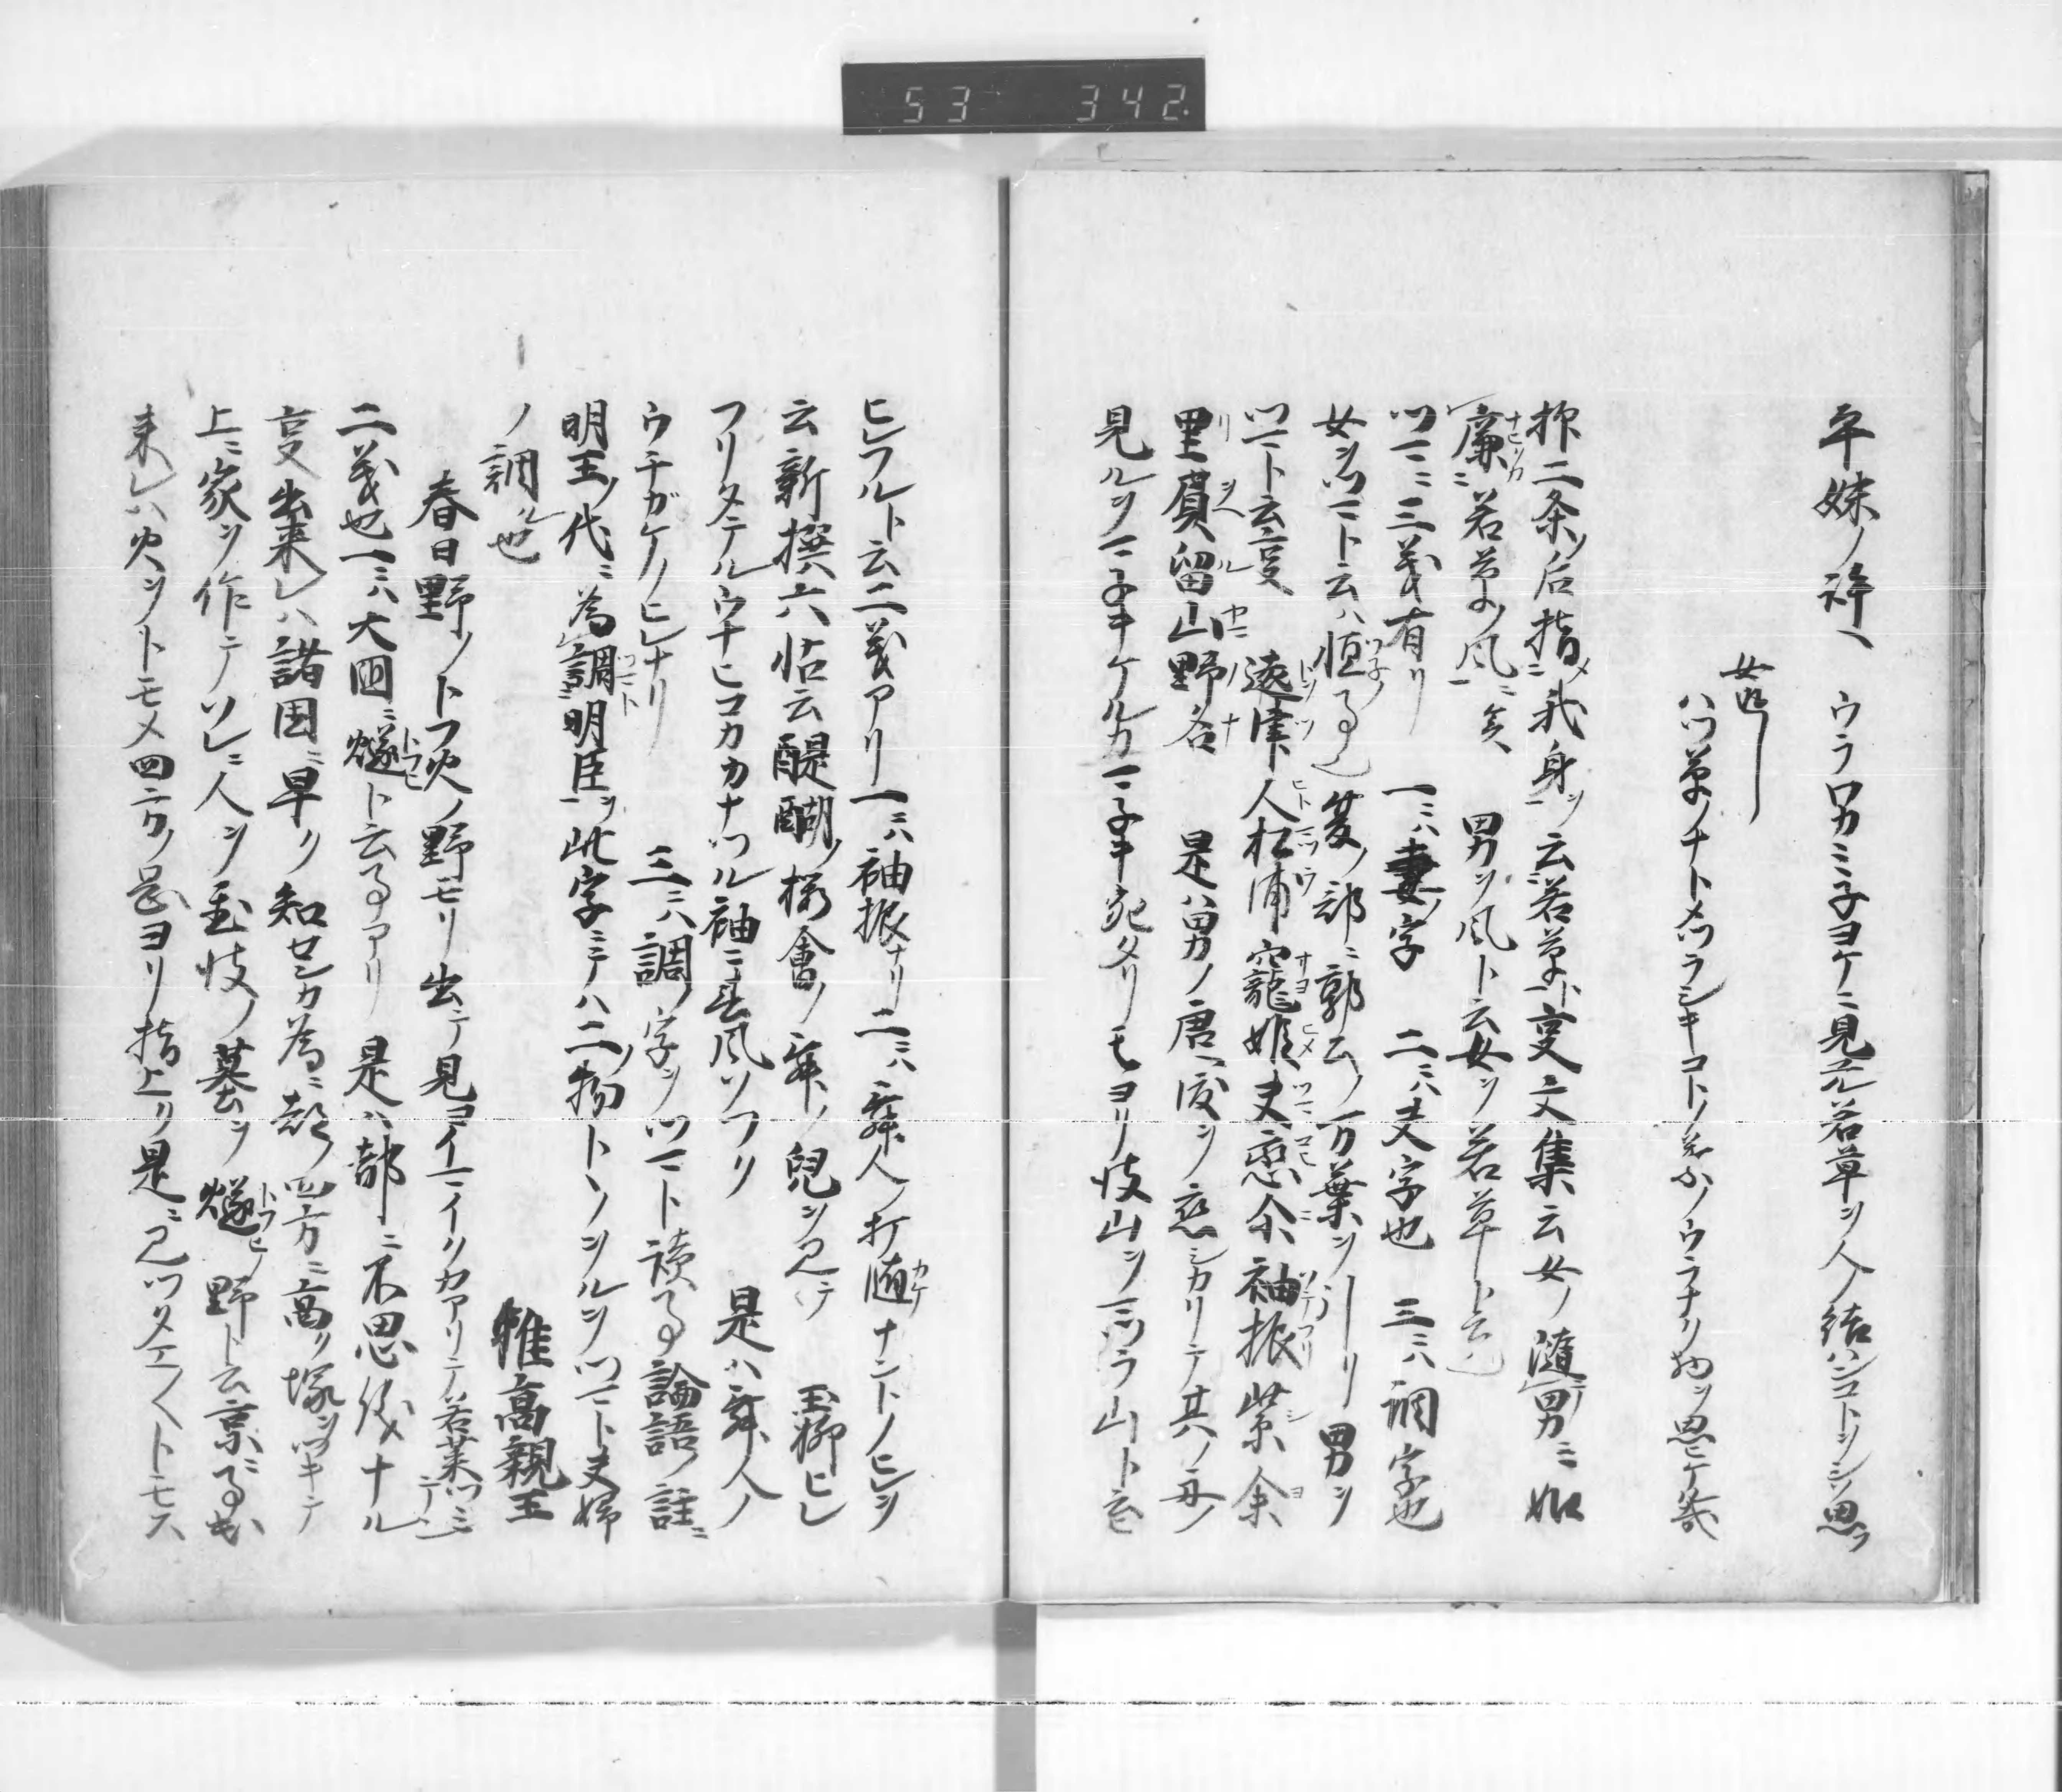 53 342
平妹ノ許ヘ ウラワカミ子ヨケニ見ユル若草ヲ人ノ結ハンコトヲシソ思フ
女返
ハツ草ノナトメツラシキコトノ葉ノウラナリ物ヲ思ヒケル哉
抑二条ノ后指ニ我身ヲ云若草ト事文集云女ノ随男ニ如
廉ニ若草ノ風ニ矣 男ヲ風ト云女ヲ若草ト云也
ツマニ三義有リ 一ニハ妻ノ字 二ニハ夫字也 三ニハ調字也
女ヲツマト云ハ恒ノ事也 葵ノ部ニ郭公ノ万葉ヲ引リ 男ヲ
ツマト云事 遠津人松浦窕姫夫恋尓袖振紫余
里蕢留山野名 是ハ男ノ唐ヘ渡ヲ恋シカリテ其ノ舟ノ
見ルヲマ子キケルカマ子キ死タリモヨリ彼山ヲマツラ山ト云
ヒレフルト云二義アリ一ニハ袖振ナリ二ニハ舞人ノ打随ナントノヒレヲ
云新撰六帖云醍醐ノ桜會ノ舞ノ兒ヲ見テ 玉柳ヒレ
フリタテルウナヒコカカナツル袖ニ春風ソフリ 是ハ舞人ノ
ウチガケノヒレナリ 三ニハ調ノ字ヲツマト読事論語ノ註ニ
明王ノ代ニ為調ニ明臣ヲ此字ニテハ二ノ物トヽノヲルヲツマト夫婦
ノ調也 惟高親王
春日野ノトフ火ノ野モリ出テ見ヨイマイクカアリテ若菜ツミテン
二義也一ニハ大国ニ燧ト云事アリ 是ハ都ニ不思儀ナル
事出来レハ諸国ニ早ク知セシカ為ニ都ノ四方ニ高ク塚ヲツキテ
上ニ家ヲ作テソレニ人ヲ置彼ノ墓ヲ燧野ト云京ニ事出
来レハ火ヲトモメ四方ノ岳ヨリ指上リ是ニ見ツタエ〱トモス